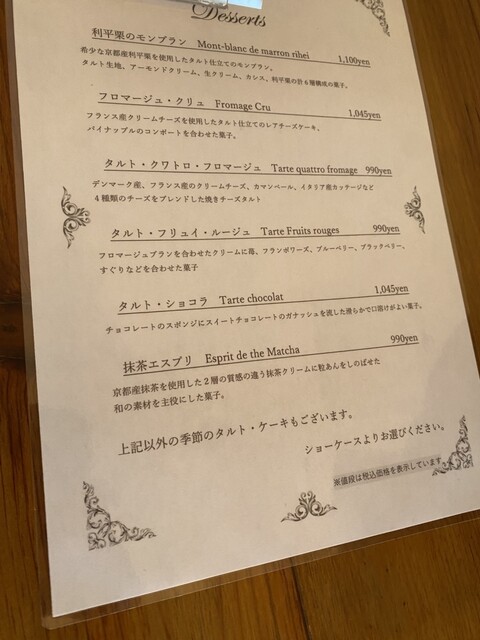 Desserts
利平栗のモンブラン Mont-blanc de marron rihei 1,100yen
希少な京都産利平栗を使用したタルト仕立てのモンブラン、
タルト生地、アーモンドクリーム、生クリーム、カシス、利平栗の計６層構成の菓子。
フロマージュ・クリュ Fromage Cru 1,045yen
フランス産クリームチーズを使用したタルト仕立てのレアチーズケーキ、
パイナップルのコンポートを合わせた菓子。
タルト・クワトロ・フロマージュ Tarte quattro fromage 990yen
デンマーク産、フランス産のクリームチーズ、カマンベール、イタリア産カッテージなど
４種類のチーズをブレンドした焼きチーズタルト
タルト・フリュイ・ルージュ Tarte Fruits rouges 990yen
フロマージュブランを合わせたクリームに苺、フランボワーズ、ブルーベリー、ブラックベリー、
すぐりなどを合わせた菓子
タルト・ショコラ Tarte chocolat 1,045yen
チョコレートのスポンジにスイートチョコレートのガナッシュを流した滑らかで口溶けがよい菓子。
抹茶エスプリ Esprit de the Matcha 990yen
京都産抹茶を使用した２層の質感の違う抹茶クリームに粒あんをしのばせた
和の素材を主役にした菓子。
上記以外の季節のタルト・ケーキもございます。
ショーケースよりお選びください。
※値段は税込価格を表示しています